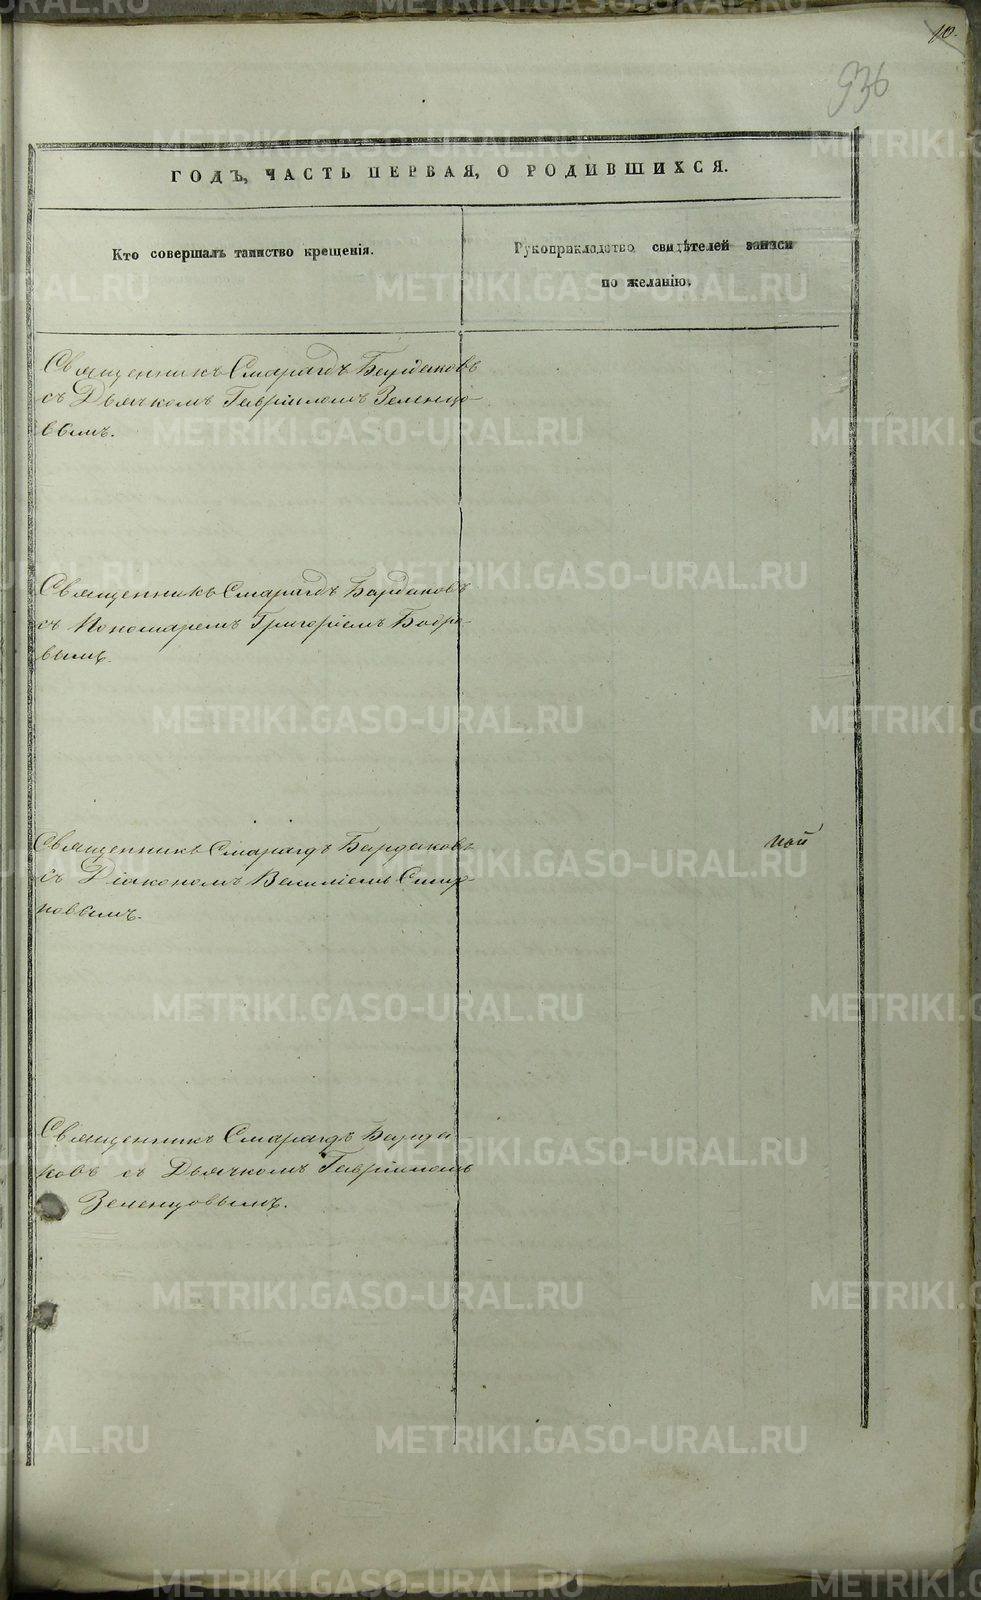 10.
936
ГОДЪ, ЧАСТЬ ПЕРВАЯ, О РОДИВШИХСЯ.
Кто совершалъ таинство крещенія.
Рукоприкладство свидѣтелей записи
по желанію.
Священникъ Смарагдъ Бардаковъ
съ Дьячкомъ Гавріиломъ Зеленцо-
вымъ.
Священникъ Смарагдъ Бардаковъ
съ Пономаремъ Григоріемъ Бобро-
вымъ.
Священникъ Смарагдъ Бардаковъ
съ Діакономъ Василіемъ Смир-
новымъ.
Священникъ Смарагдъ Барда
ковъ съ Дьячкомъ Гавріиломъ
Зеленцовымъ.
METRIKI.GASO-URAL.RU